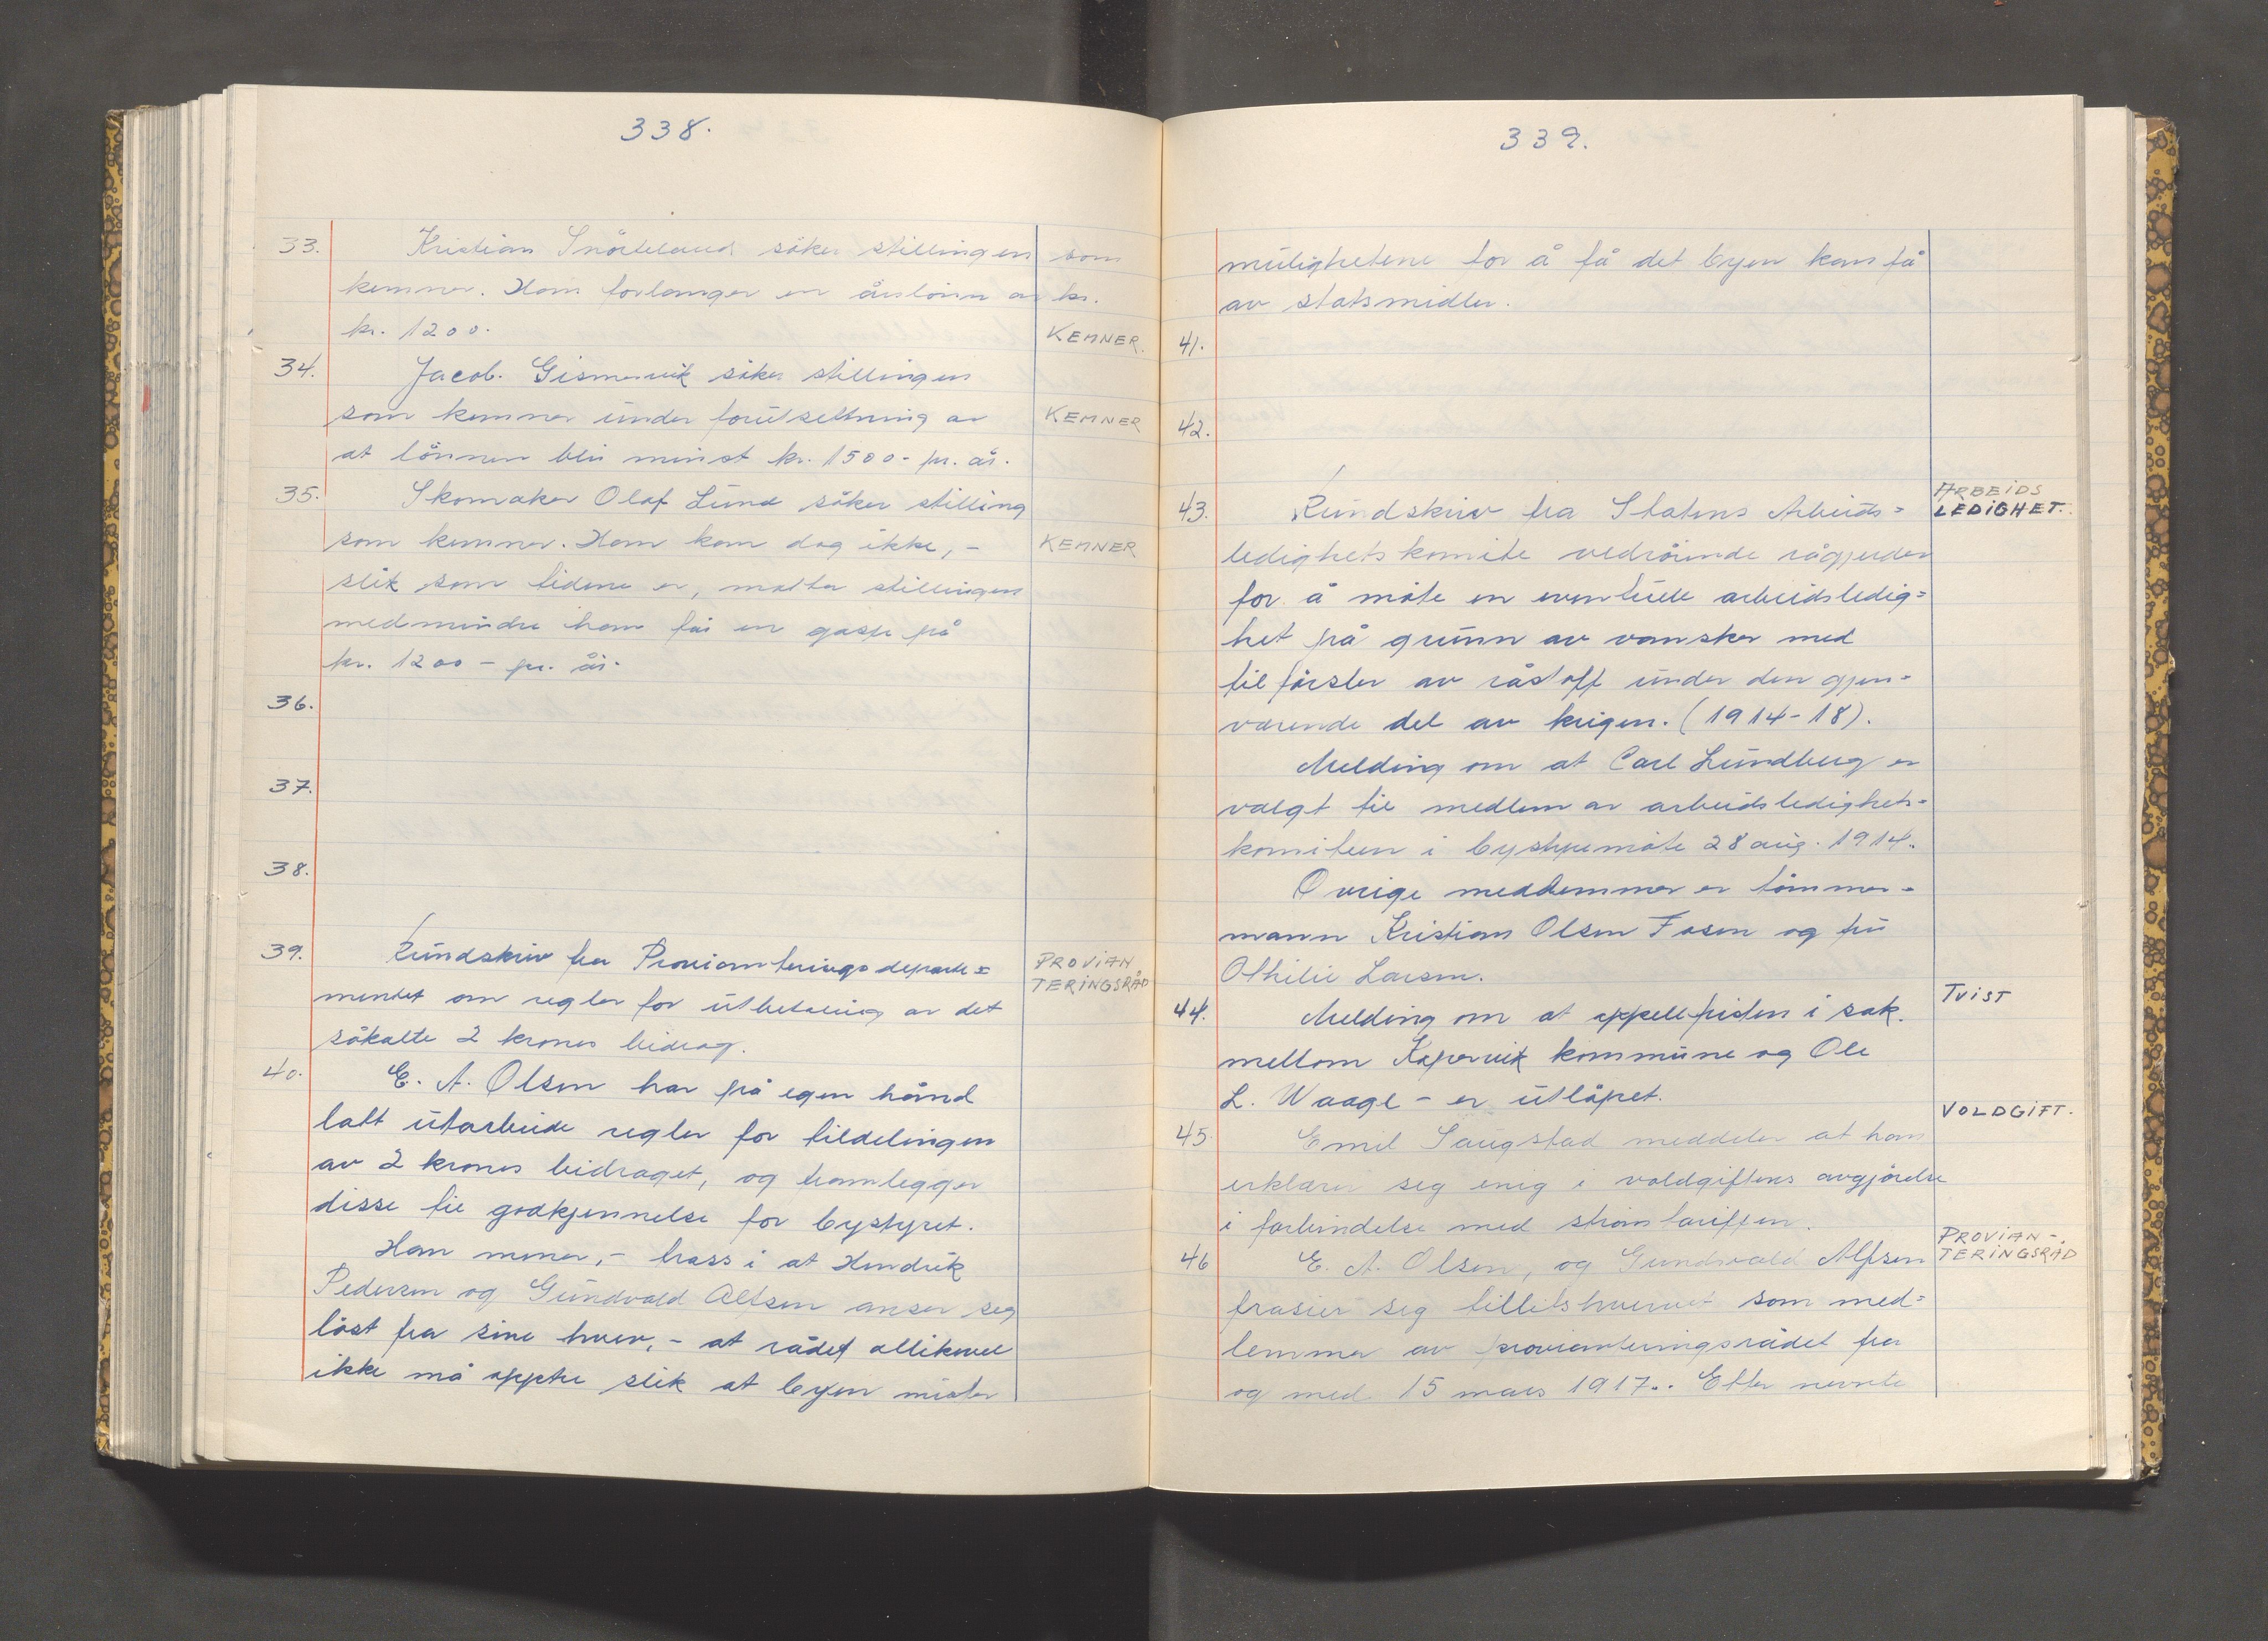 338.
33. Kristian Snörteland söker stillingen som
kemner. Han forlanger en årslönn av kr.
kr. 1200.
KEMNER.
34. Jacob. Gismervik söker stillingen
som kemner under forutsettning av
KEMNER
at lönnen blir minst kr. 1500- pr. år.
35. Skomaker Olaf Lund söker stilling
som kemner. Han kan dog ikke, -
KEMNER
slik som tidene er, motta stillingen
medmindre han får en gasje på
kr. 1200 - pr. år.
36.
37.
38.
39. Rundskriv fra Provianteringsdeparte=
PROVIAN
TERINGSRÅD
mentet om regler for utbetaling av det
såkalte 2 krones bidrag.
40. E. A. Olsen har på egen hånd
latt utarbeide regler for tildelingen
av 2 krones bidraget, og framlegger
disse til godkjennelse for bystyret.
Han mener, - trass i at Hendrik
Pedersen og Gundvald Alfsen anser seg
löst fra sine hverv, - at rådet allikevel
ikke må opptre slik at byen mister
339.
mulighetene for å få det byen kan få
av statsmidler.
41.
42.
43. Rundskriv fra Statens Arbeids=
ARBEIDS
LEDIGHET.
ledighetskomite vedrörende rågjerder
for å möte en eventuell arbeidsledig=
het på grunn av vansker med
tilförsler av råstoff under den gjen=
værende del av krigen. (1914-18).
Melding om at Carl Lundberg er
valgt til medlem av arbeidsledighets=
komiteen i bystyremöte 28 aug. 1914.
Övrige medlemmer er tömmer=
mann Kristian Olsen Fosen og fru
Othilie Larsen.
44. Melding om at appellfristen i sak.
TVIST
mellom Kopervik kommune og Ole
L. Waage - er utlöpet.
VOLDGIFT.
45. Emil Saugstad meddeler at han
erklærer seg enig i voldgiftens avgjörelse
i forbindelse med strömtariffen.
46 E. A. Olsen, og Gundvald Alfsen
PROVIAN-
TERINGSRÅD
frasier seg tillitshvervet som med=
lemmer av provianteringsrådet fra
og med 15 mars 1917. Etter nevnte